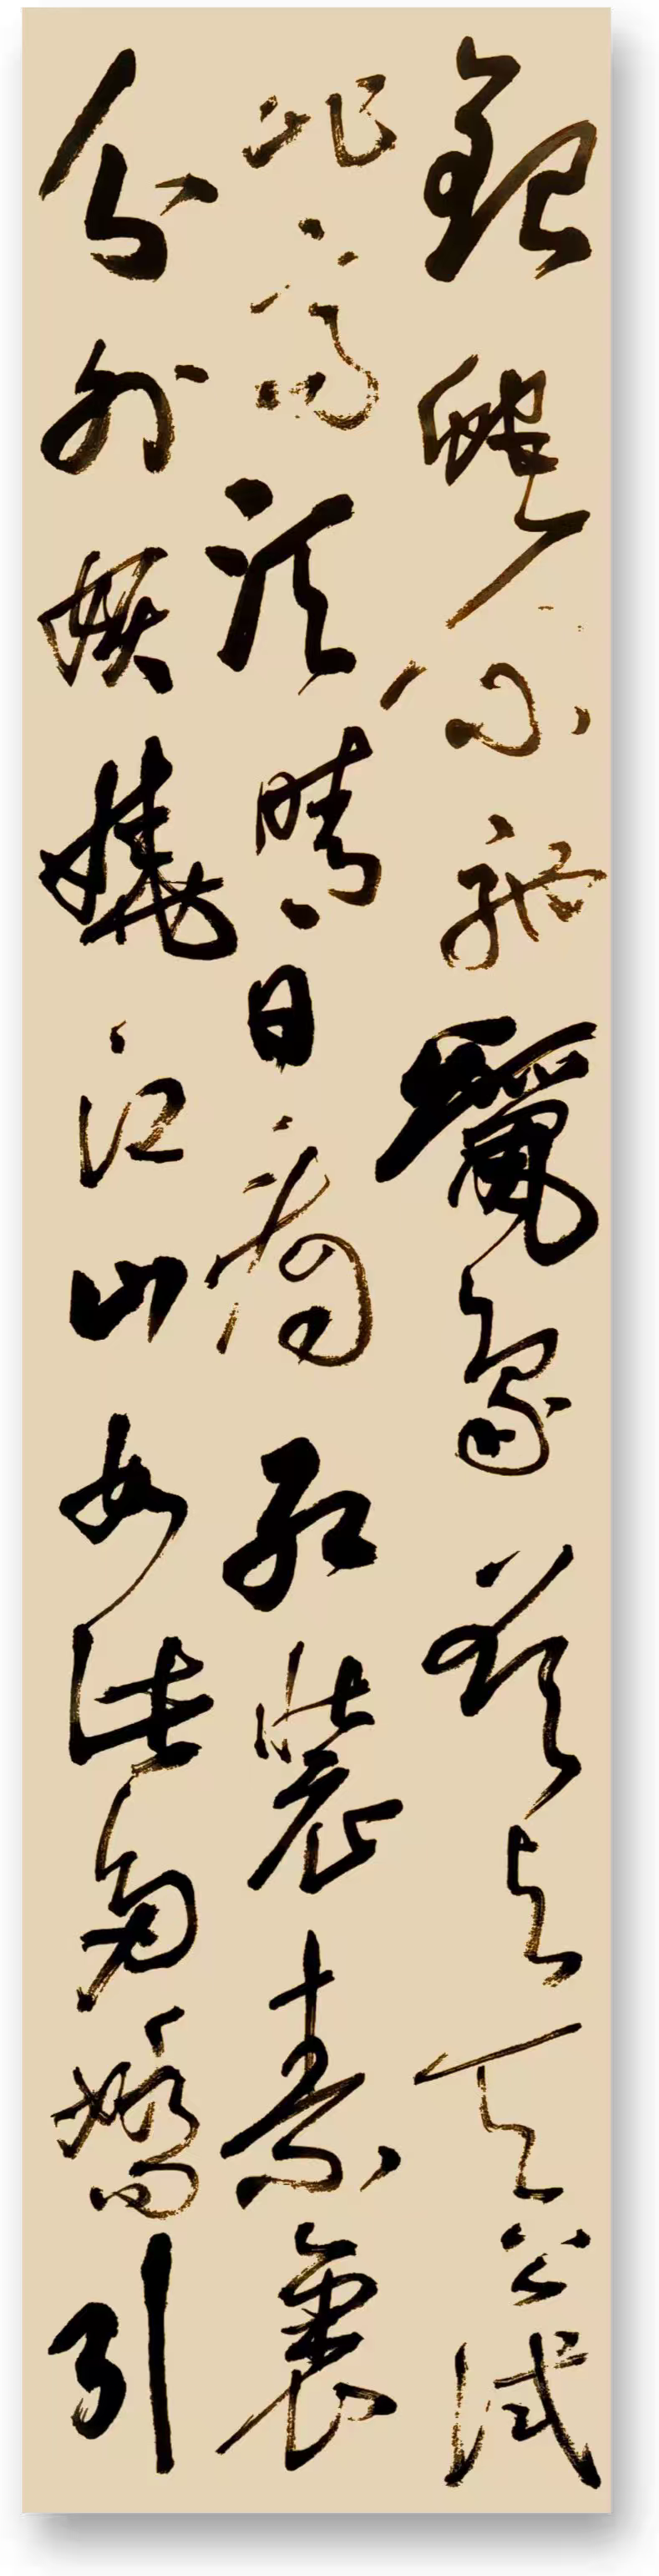 銀蛇原馳臘象欲与天公試
比高須晴日看紅裝素裹
分外妖嬈江山如此多嬌引